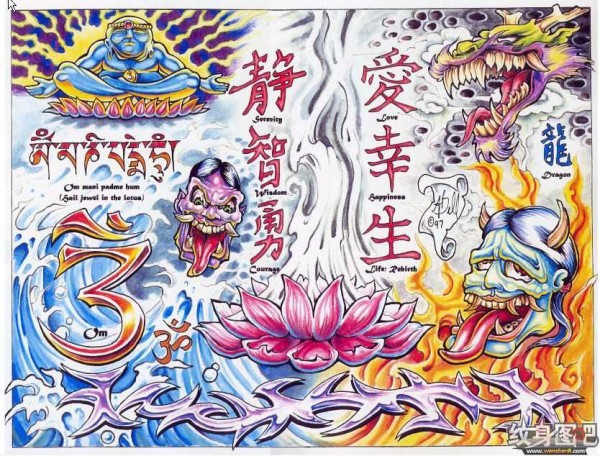 靜
智
Wisdom
勇
Courage
愛
Love
幸
Happiness
生
Life: Rebirth
龍
Dragon
Om mani padme hum
(Hail jewel in the lotus)
Om
ॐ
©97
纹身图吧
www.wenshen8.com